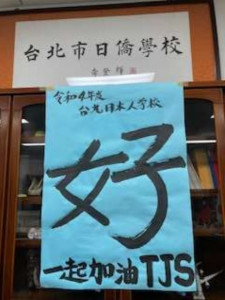 台北市日僑學校
李登輝
令和4年度
台北日本人学校
好
一起加油TJS